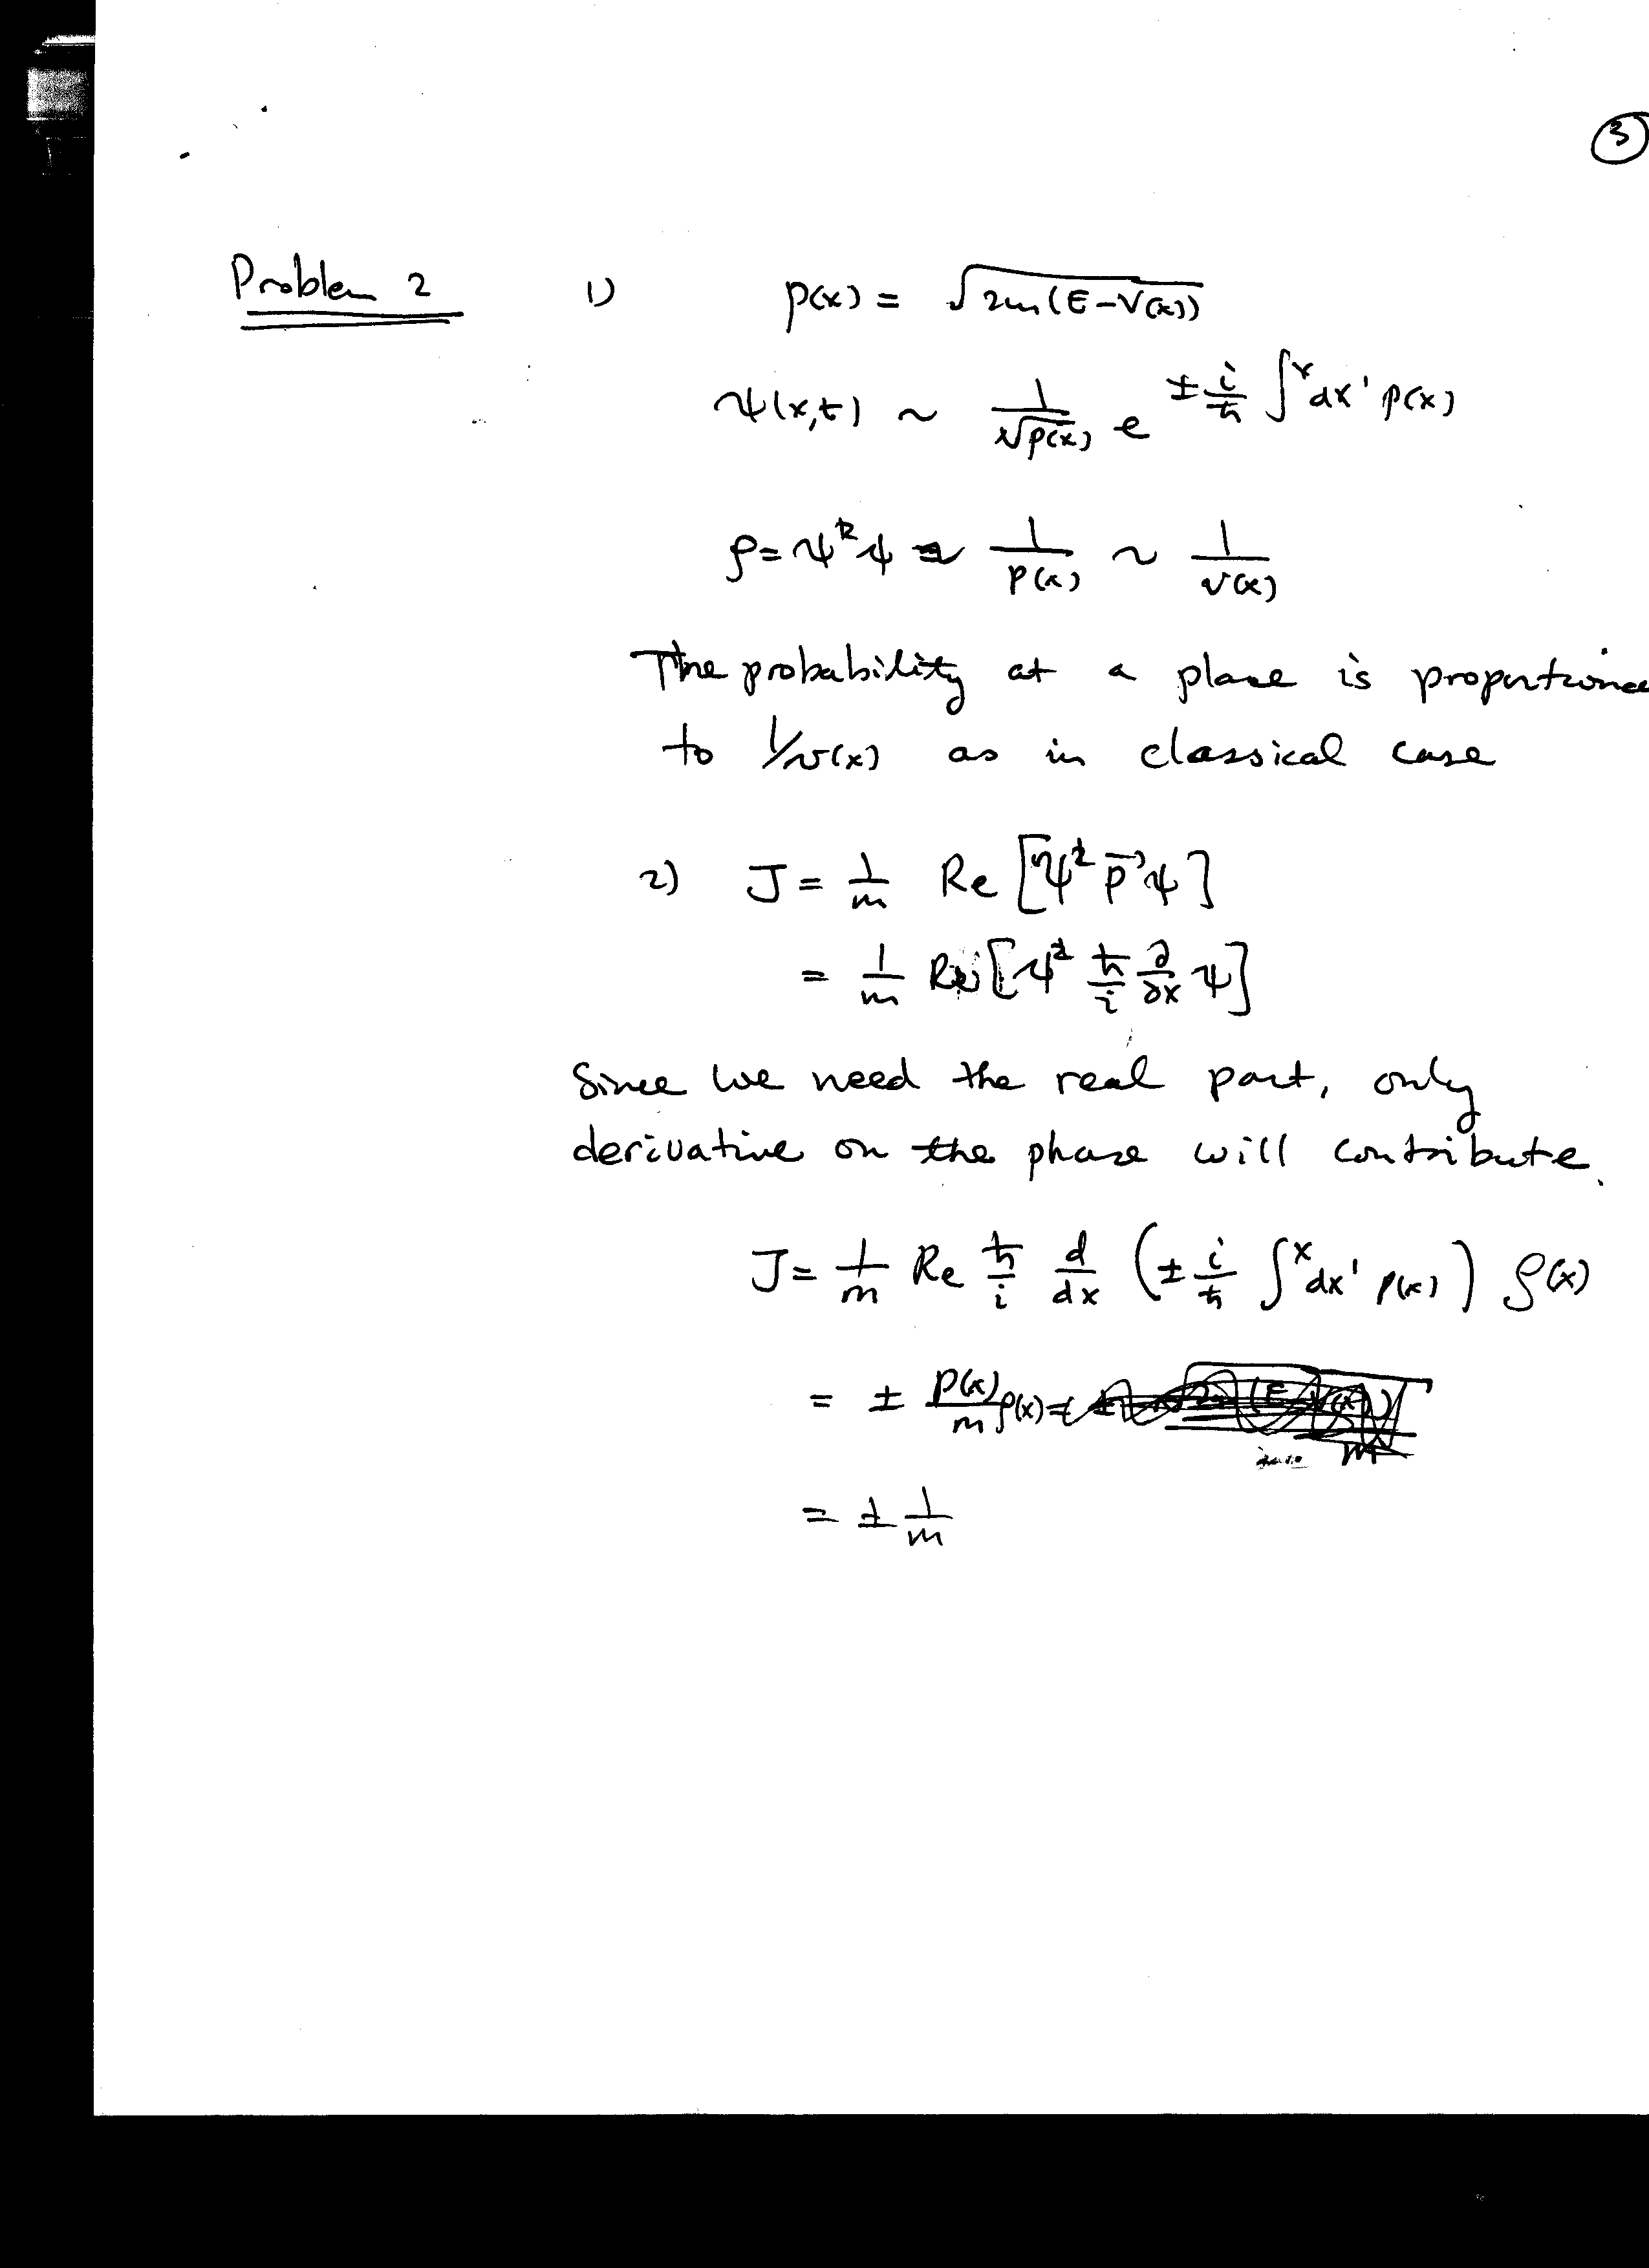 3
Problem 2 1) p(x) = √2m(E-V(x))
ψ(x,t) ~ 1/√p(x) e^{± i/ħ ∫^x dx' p(x)}
ρ = ψ*ψ ~ 1/p(x) ~ 1/v(x)
The probability at a place is proportiona
to 1/v(x) as in classical case
2) J = 1/m Re [ψ* p⃗ ψ]
= 1/m Re [ψ* ħ/i ∂/∂x ψ]
Since we need the real part, only
derivative on the phase will contribute.
J = 1/m Re ħ/i d/dx (± i/ħ ∫^x dx' p(x)) ρ(x)
= ± p(x)/m ρ(x) =
= ± 1/m